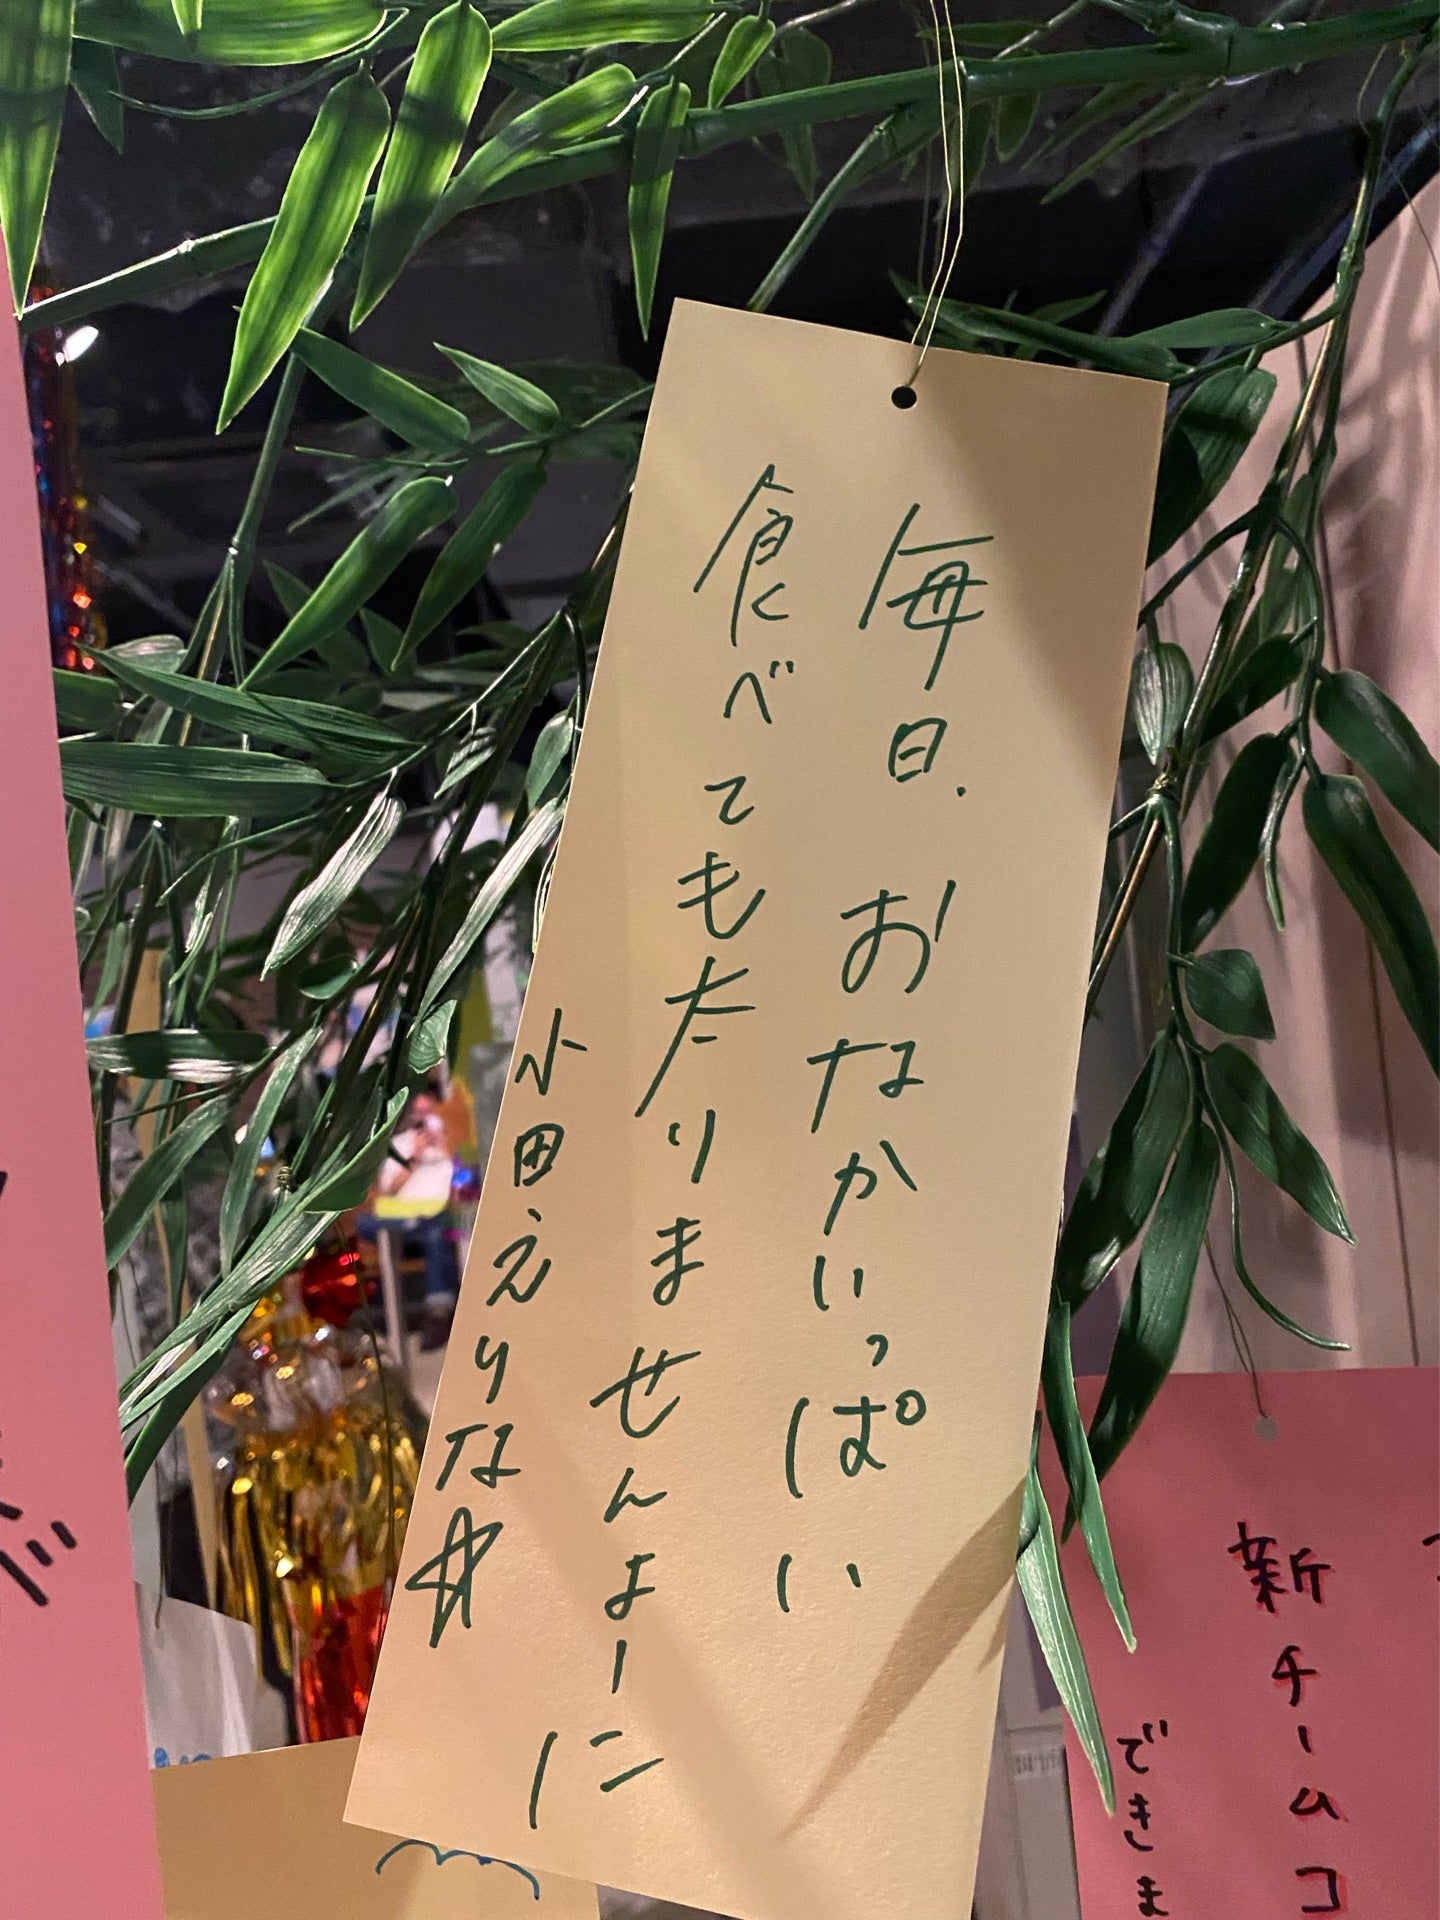 毎日、おなかいっぱい
食べてもたりませんよーに
小田えりな☆
新チームコ
できま